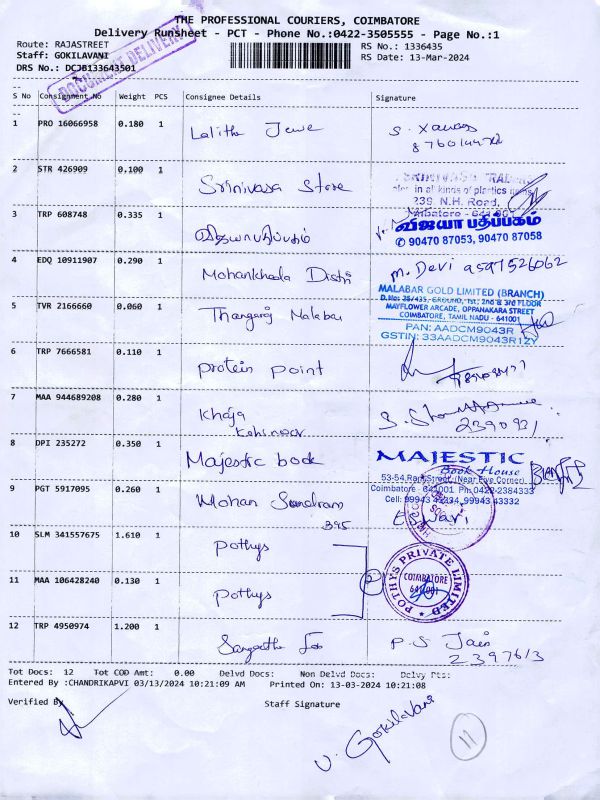 THE PROFESSIONAL COURIERS, COIMBATORE
Delivery Runsheet - PCT - Phone No.:0422-3505555 - Page No.:1
Route: RAJASTREET
Staff: GOKILAVANI
DRS No.: DCJB133643501
RS No.: 1336435
RS Date: 13-Mar-2024
DOCUMENT DELIVERY
S No Consignment No Weight PCS Consignee Details Signature
1 PRO 16066958 0.180 1 Lalitha Jewe
2 STR 426909 0.100 1 Srinivasa Store
SRINIVASA TRADERS
in all kinds of plastics items
239, N.H. Road,
3 TRP 608748 0.335 1
விஜயா பதிப்பகம்
✆ 90470 87053, 90470 87058
4 EDQ 10911907 0.290 1
m. Devi
5 TVR 2166660 0.060 1 Thangaraj Malabar
MALABAR GOLD LIMITED (BRANCH)
D.No: 25/435, GROUND, 1st, 2nd & 3rd FLOOR
MAYFLOWER ARCADE, OPPANAKARA STREET
COIMBATORE, TAMIL NADU - 641001
PAN: AADCM9043R
GSTIN: 33AADCM9043R1ZY
6 TRP 7666581 0.110 1 protein point
7 MAA 944689208 0.280 1 Khaja
Kohinoor
2390931
8 DPI 235272 0.350 1 Majestic book
MAJESTIC
Book House
53-54, Raja Street, (Near Five Corner),
Coimbatore - 641001 Ph: 0422-2384333
Cell: 99943 43334, 99943 43332
9 PGT 5917095 0.260 1 Mohan Sundram
395
10 SLM 341557675 1.610 1 pothys
11 MAA 106428240 0.130 1 pothys
2
POTHYS PRIVATE LIMITED
COIMBATORE
641 001
12 TRP 4950974 1.200 1
P.S Jain
2397613
Tot Docs: 12 Tot COD Amt: 0.00 Delvd Docs: Non Delvd Docs: Delvy Pts:
Entered By :CHANDRIKAPVI 03/13/2024 10:21:09 AM Printed On: 13-03-2024 10:21:08
Verified By
Staff Signature
V. Gokilavani
11